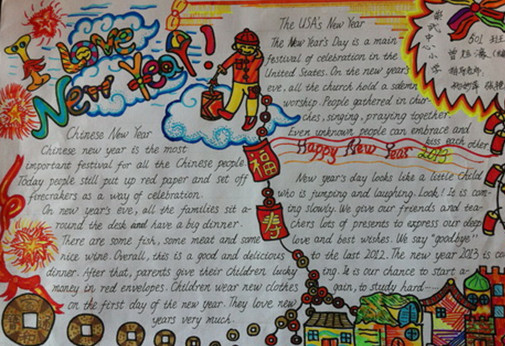 I Love
New Year!
Chinese New Year
Chinese new year is the most
important festival for all the Chinese people.
Today people still put up red paper and set off
firecrakers as a way of celebration.
On new year's eve, all the families sit a-
round the desk and have a big dinner.
There are some fish, some meat and some
nice wine. Overall, this is a good and delicious
dinner. After that, parents give their children lucky
money in red envelopes. Children wear new clothes
on the first day of the new year. They love new
years very much.
福
The USA's New Year
The New Year's Day is a main
festival of celebration in the
United States. On the new year's
eve, all the church hold a solemn
worship. People gathered in chur-
ches, singing, praying together.
Even unknown people can embrace and
kiss each other
Happy New Year 2013
New year's day looks like a little child
who is jumping and laughing. Look! It is com-
ing slowly. We give our friends and tea-
chers lots of presents to express our deep
love and best wishes. We say "goodbye"
to the last 2012. The new year 2013 is co
ing. It is our chance to start a-
gain, to study hard
中心小学
501 班